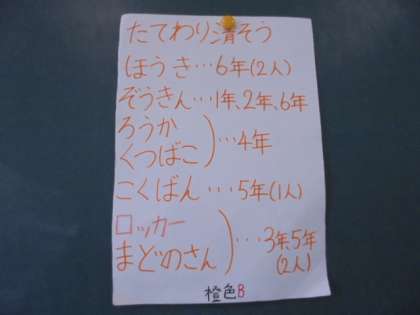 たてわり清そう
ほうき…6年(2人)
ぞうきん…1年、2年、6年
ろうか
くつばこ)…4年
こくばん…5年(1人)
ロッカー
まどのさん)…3年5年
(2人)
橙色B